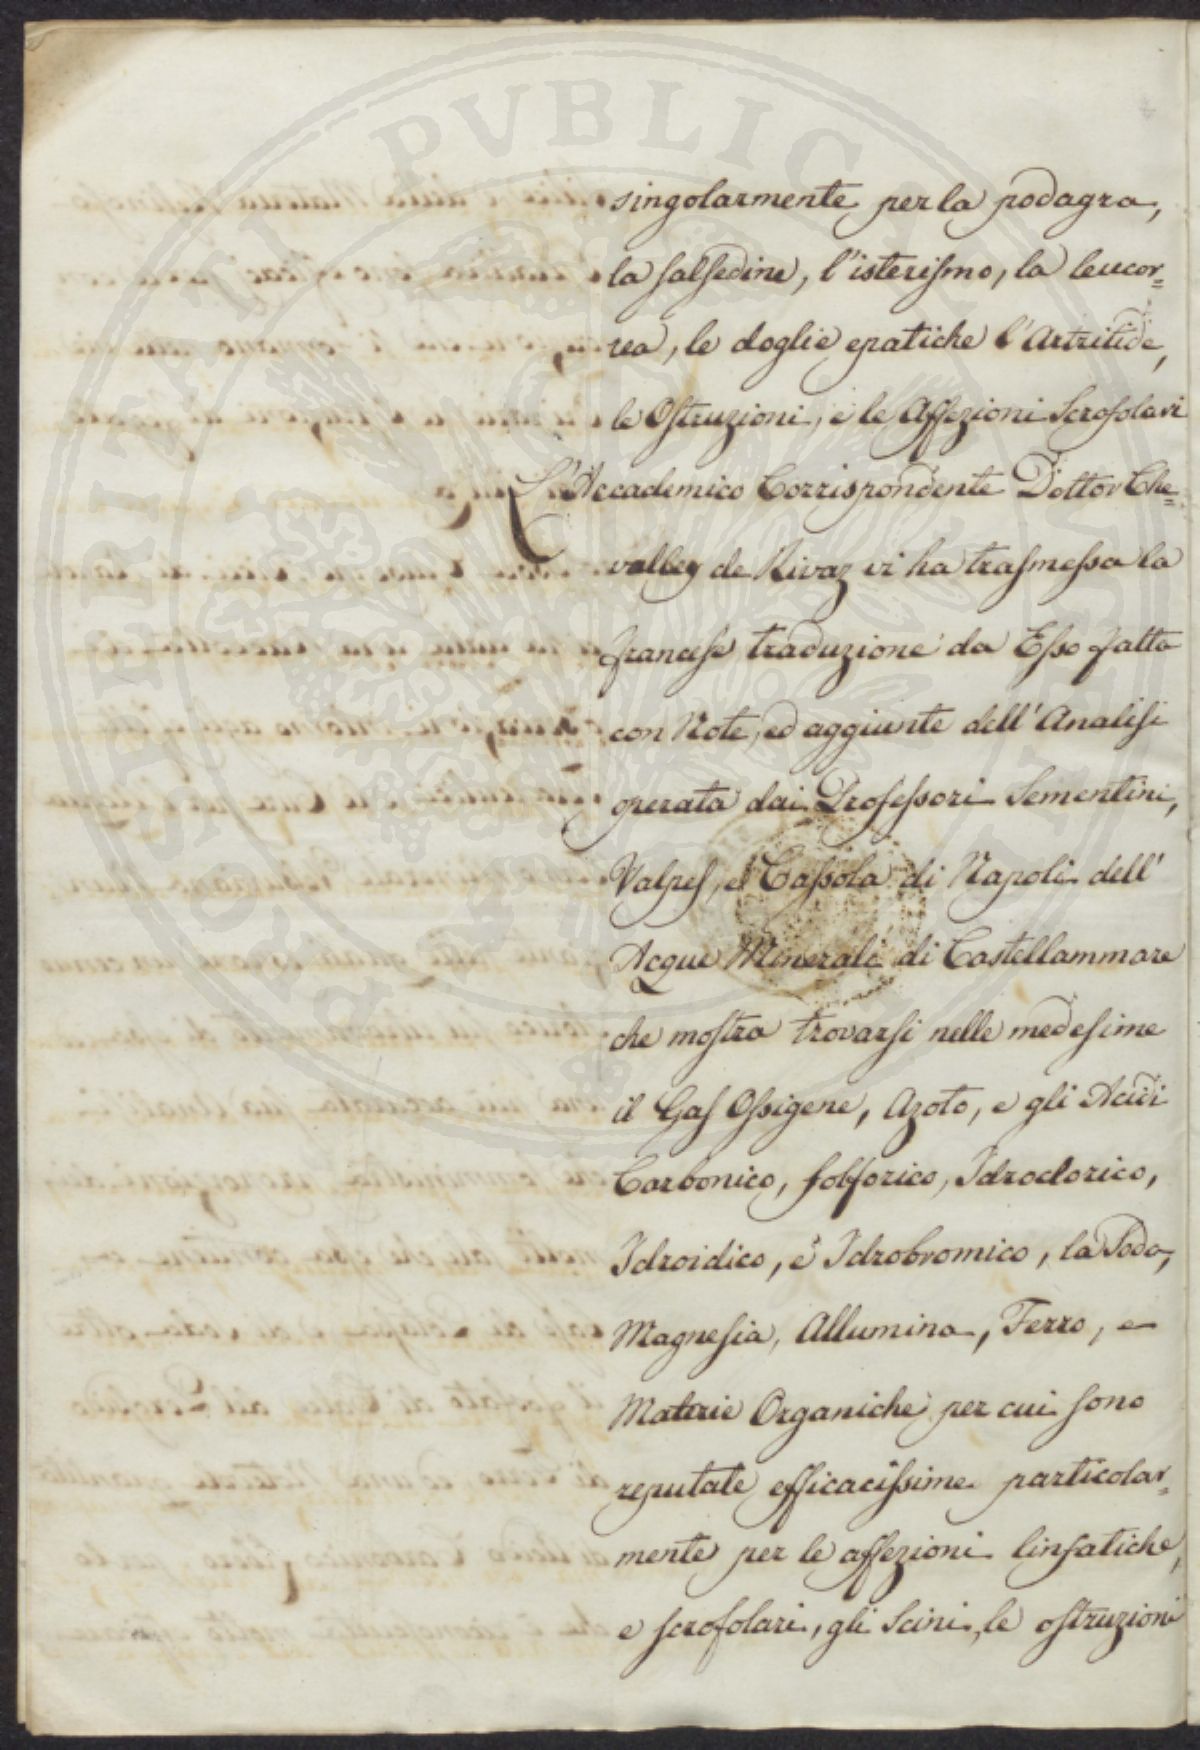 singolarmente per la podagra,
la salsedine, l'isterismo, la leucor=
rea, le doglie epatiche l'Artritide,
le Ostruzioni, e le Affezioni Scrofolari
L'Accademico Corrispondente Dottor Che=
valley de Rivaz vi ha trasmessa la
francese traduzione da Esso fatta
con Note, ed aggiunte dell'Analisi
operata dai Professori Sementini,
Valpes, e Cassola di Napoli dell'
Acque Minerali di Castellammare
che mostra trovarsi nelle medesime
il Gas Ossigene, Azoto, e gli Acidi
Carbonico, Solforico, Idroclorico,
Idroidico, e Idrobromico, la Soda,
Magnesia, Allumina, Ferro, e
Materie Organiche per cui sono
reputate efficacissime particolar=
mente per le affezioni linfatiche,
e scrofolari, gli Scini, le ostruzioni
PROSPERITATI PUBLICAE